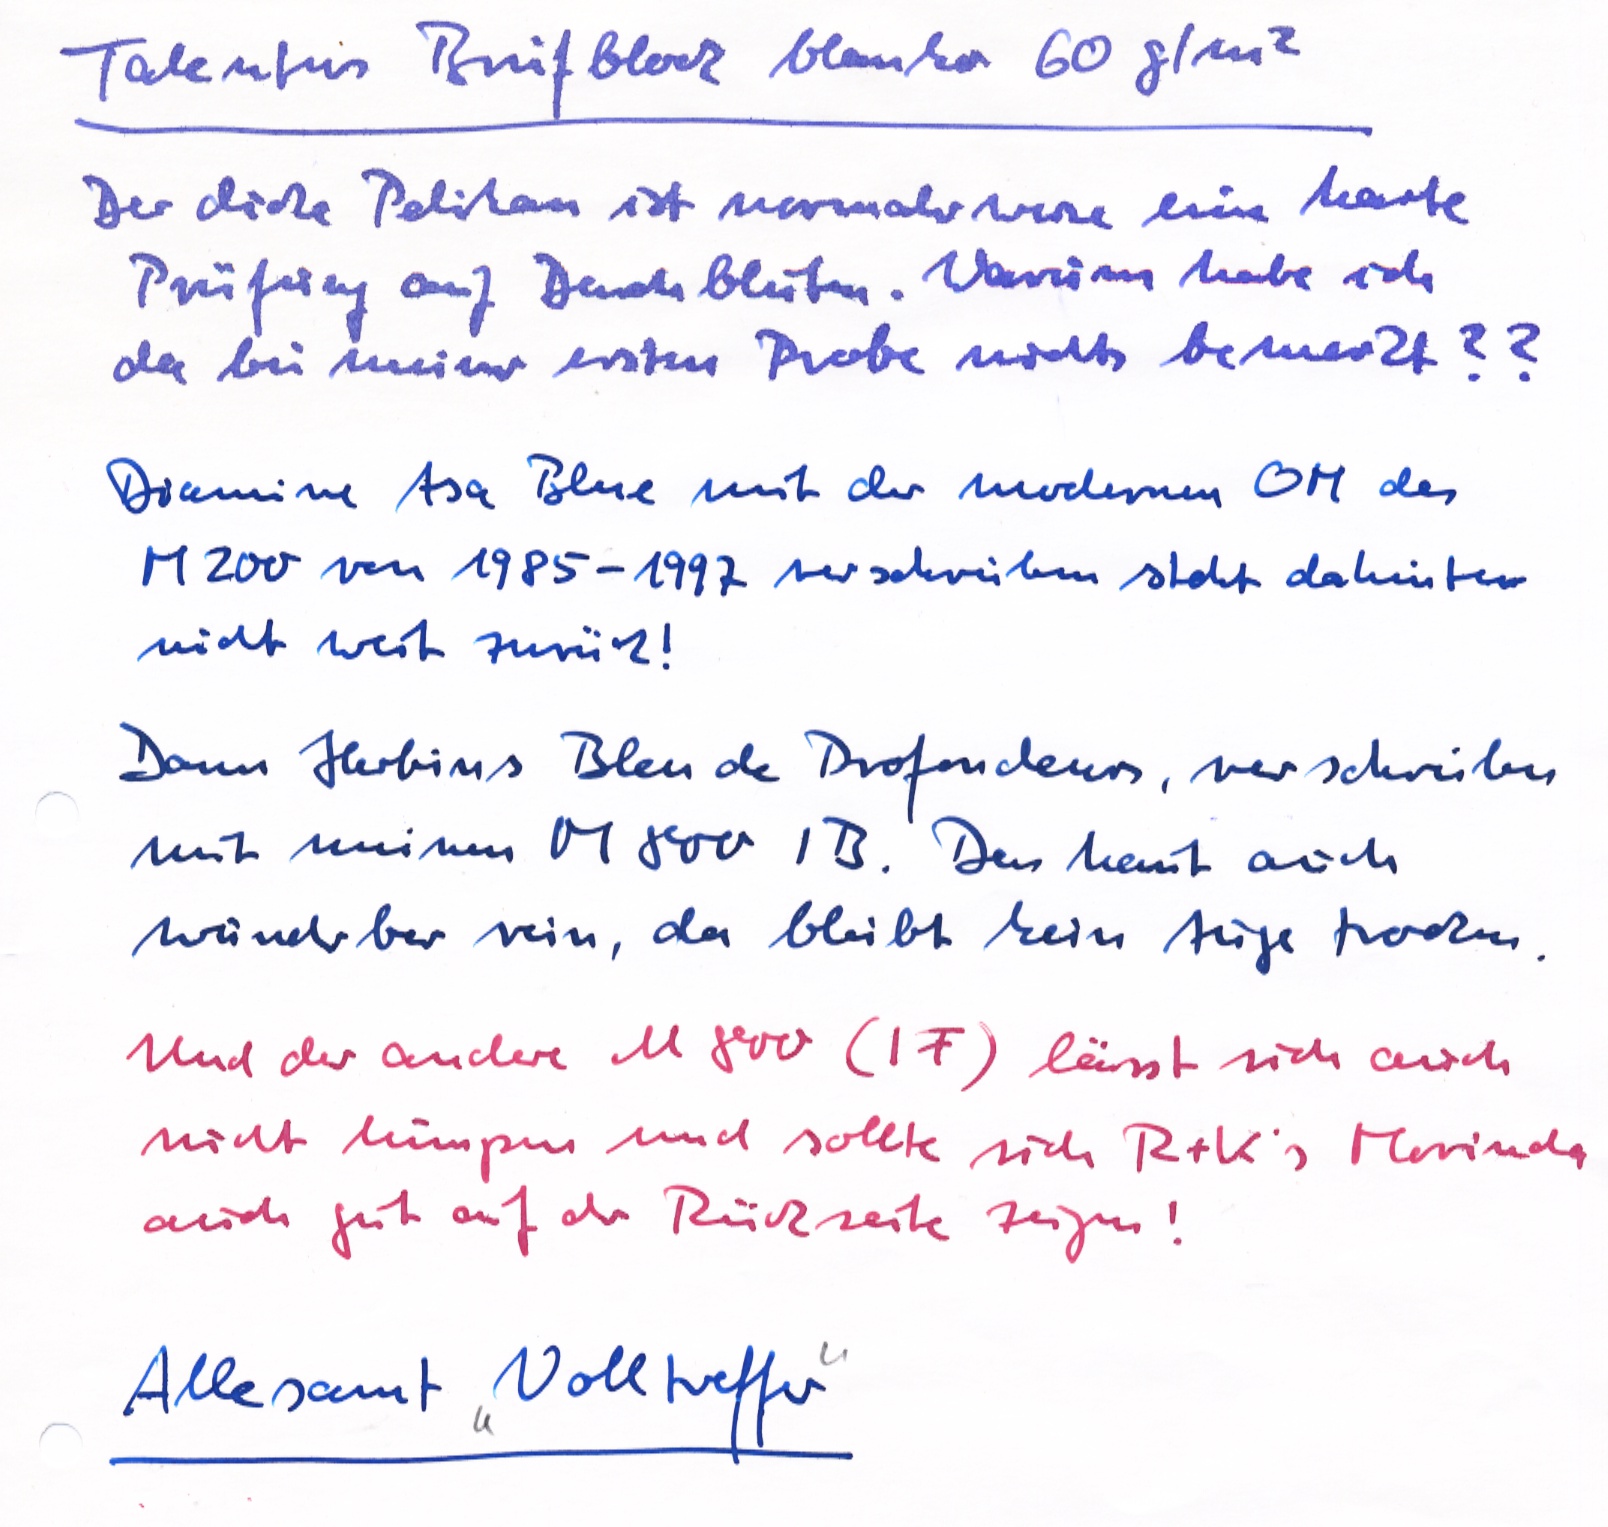 Talentus Briefblock blanko 60 g/m²
Der dicke Pelikan ist normalerweise eine harte
Prüfung auf Durchbluten. Warum habe ich
da bei meiner ersten Probe nichts bemerkt??
Diamine Asa Blue mit der modernen OM des
M200 von 1985-1997 verschrieben steht dahinter
nicht weit zurück!
Dann Herbins Bleu de Profondeurs, verschrieben
mit meinem M800 IB. Das haut auch
wunderbar rein, da bleibt kein Auge trocken.
Und der andere M800 (IF) lässt sich auch
nicht lumpen und sollte sich R+K's Morinda
auch gut auf der Rückseite zeigen!
Allesamt "Volltreffer"